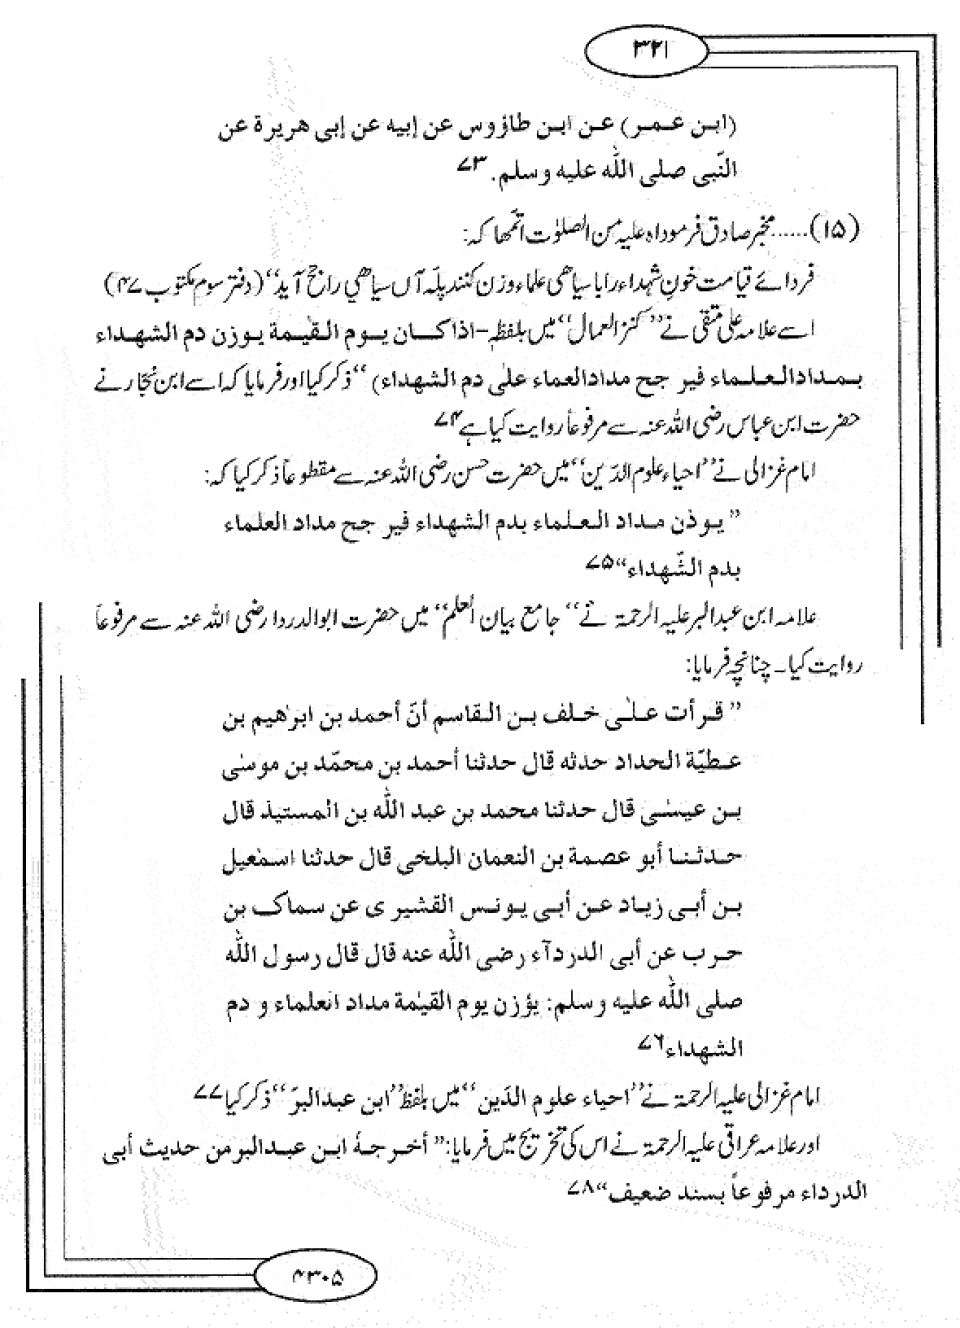 ۳۲۱
(ابن عمر) عن ابن طاؤوس عن إبيه عن إبى هريرة عن
النّبى صلى اللّٰه عليه وسلم. ۷۳
(۱۵)......مخبر صادق فرموداہ علیہ من الصلوٰت اتمّها کہ:
فردائے قیامت خونِ شہداء را با سیاھی علماء وزن کنند پلّہ آں سیاھی راجح آید‘‘ (دفتر سوم مکتوب ۴۷)
اسے علامہ علی متقی نے ’’کنز العمال‘‘ میں بلفظہٖ-اذا كان يوم القيٰمة يوزن دم الشهداء
بمداد العلماء فير جح مداد العماء علٰى دم الشهداء) ‘‘ ذکر کیا اور فرمایا کہ اسے ابن نجار نے
حضرت ابن عباس رضی اللہ عنہ سے مرفوعاً روایت کیا ہے ۷۴
امام غزالی نے ’’احیاء علوم الدّین‘‘ میں حضرت حسن رضی اللہ عنہ سے مقطوعاً ذکر کیا کہ:
’’ يوذن مداد العلماء بدم الشهداء فير جح مداد العلماء
بدم الشّهداء‘‘ ۷۵
علامہ ابن عبدالبر علیہ الرحمۃ نے ’’ جامع بیان العلم‘‘ میں حضرت ابوالدردا رضی اللہ عنہ سے مرفوعاً
روایت کیا۔ چنانچہ فرمایا:
’’ قرأت علٰى خلف بن القاسم أنّ أحمد بن ابرٰهيم بن
عطيّة الحداد حدثه قال حدثنا أحمد بن محمّد بن موسٰى
بن عيسٰى قال حدثنا محمد بن عبد اللّٰه بن المستيذ قال
حدثنا أبو عصمة بن النعمان البلخى قال حدثنا اسمٰعيل
بن أبى زياد عن أبى يونس القشيرى عن سماك بن
حرب عن أبى الدردآء رضى اللّٰه عنه قال قال رسول اللّٰه
صلى اللّٰه عليه وسلم: يؤزن يوم القيٰمة مداد العلماء و دم
الشهداء ۷۶
امام غزالی علیہ الرحمۃ نے ’’احیاء علوم الدّین‘‘ میں بلفظ ’’ابن عبدالبرّ‘‘ ذکر کیا ۷۷
اور علامہ عراقی علیہ الرحمۃ نے اس کی تخریج میں فرمایا: ’’ أخرجهٔ ابن عبدالبر من حديث أبى
الدرداء مرفوعاً بسند ضعيف‘‘ ۷۸
۴۳۰۵